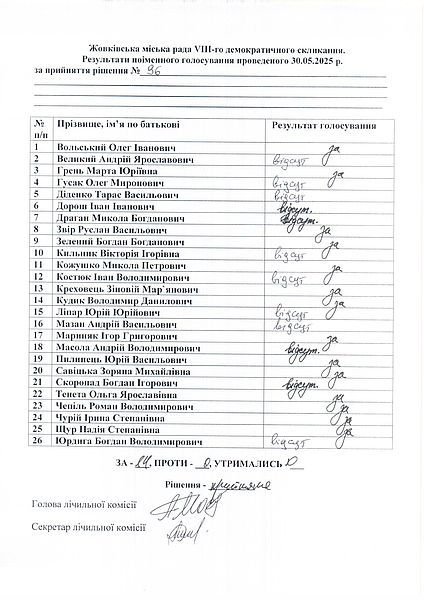 Жовківська міська рада VIII-го демократичного скликання.
Результати поіменного голосування проведеного 30.05.2025 р.
за прийняття рішення № 96
№ п/п Прізвище, ім’я по батькові Результат голосування
1 Вольський Олег Іванович за
2 Великий Андрій Ярославович відсут
3 Грень Марта Юріївна за
4 Гусак Олег Миронович відсут
5 Діденко Тарас Васильович відсут
6 Дорош Іван Іванович відсут.
7 Драган Микола Богданович відсут.
8 Звір Руслан Васильович за
9 Зелений Богдан Богданович за
10 Кильник Вікторія Ігорівна відсут
11 Кожушко Микола Петрович за
12 Костюк Іван Володимирович відсут
13 Креховець Зіновій Мар`янович за
14 Кудик Володимир Данилович за
15 Ліпар Юрій Юрійович відсут
16 Мазан Андрій Васильович відсут
17 Мариняк Ігор Григорович за
18 Масола Андрій Володимирович відсут.
19 Пилипець Юрій Васильович за
20 Савіцька Зоряна Михайлівна за
21 Скоропад Богдан Ігорович відсут.
22 Тенета Ольга Ярославівна за
23 Чепіль Роман Володимирович за
24 Чурій Ірина Степанівна за
25 Щур Надія Степанівна за
26 Юрдига Богдан Володимирович відсут
ЗА - 14, ПРОТИ - 0, УТРИМАЛИСЬ 0
Рішення - прийняте
Голова лічильної комісії
Секретар лічильної комісії